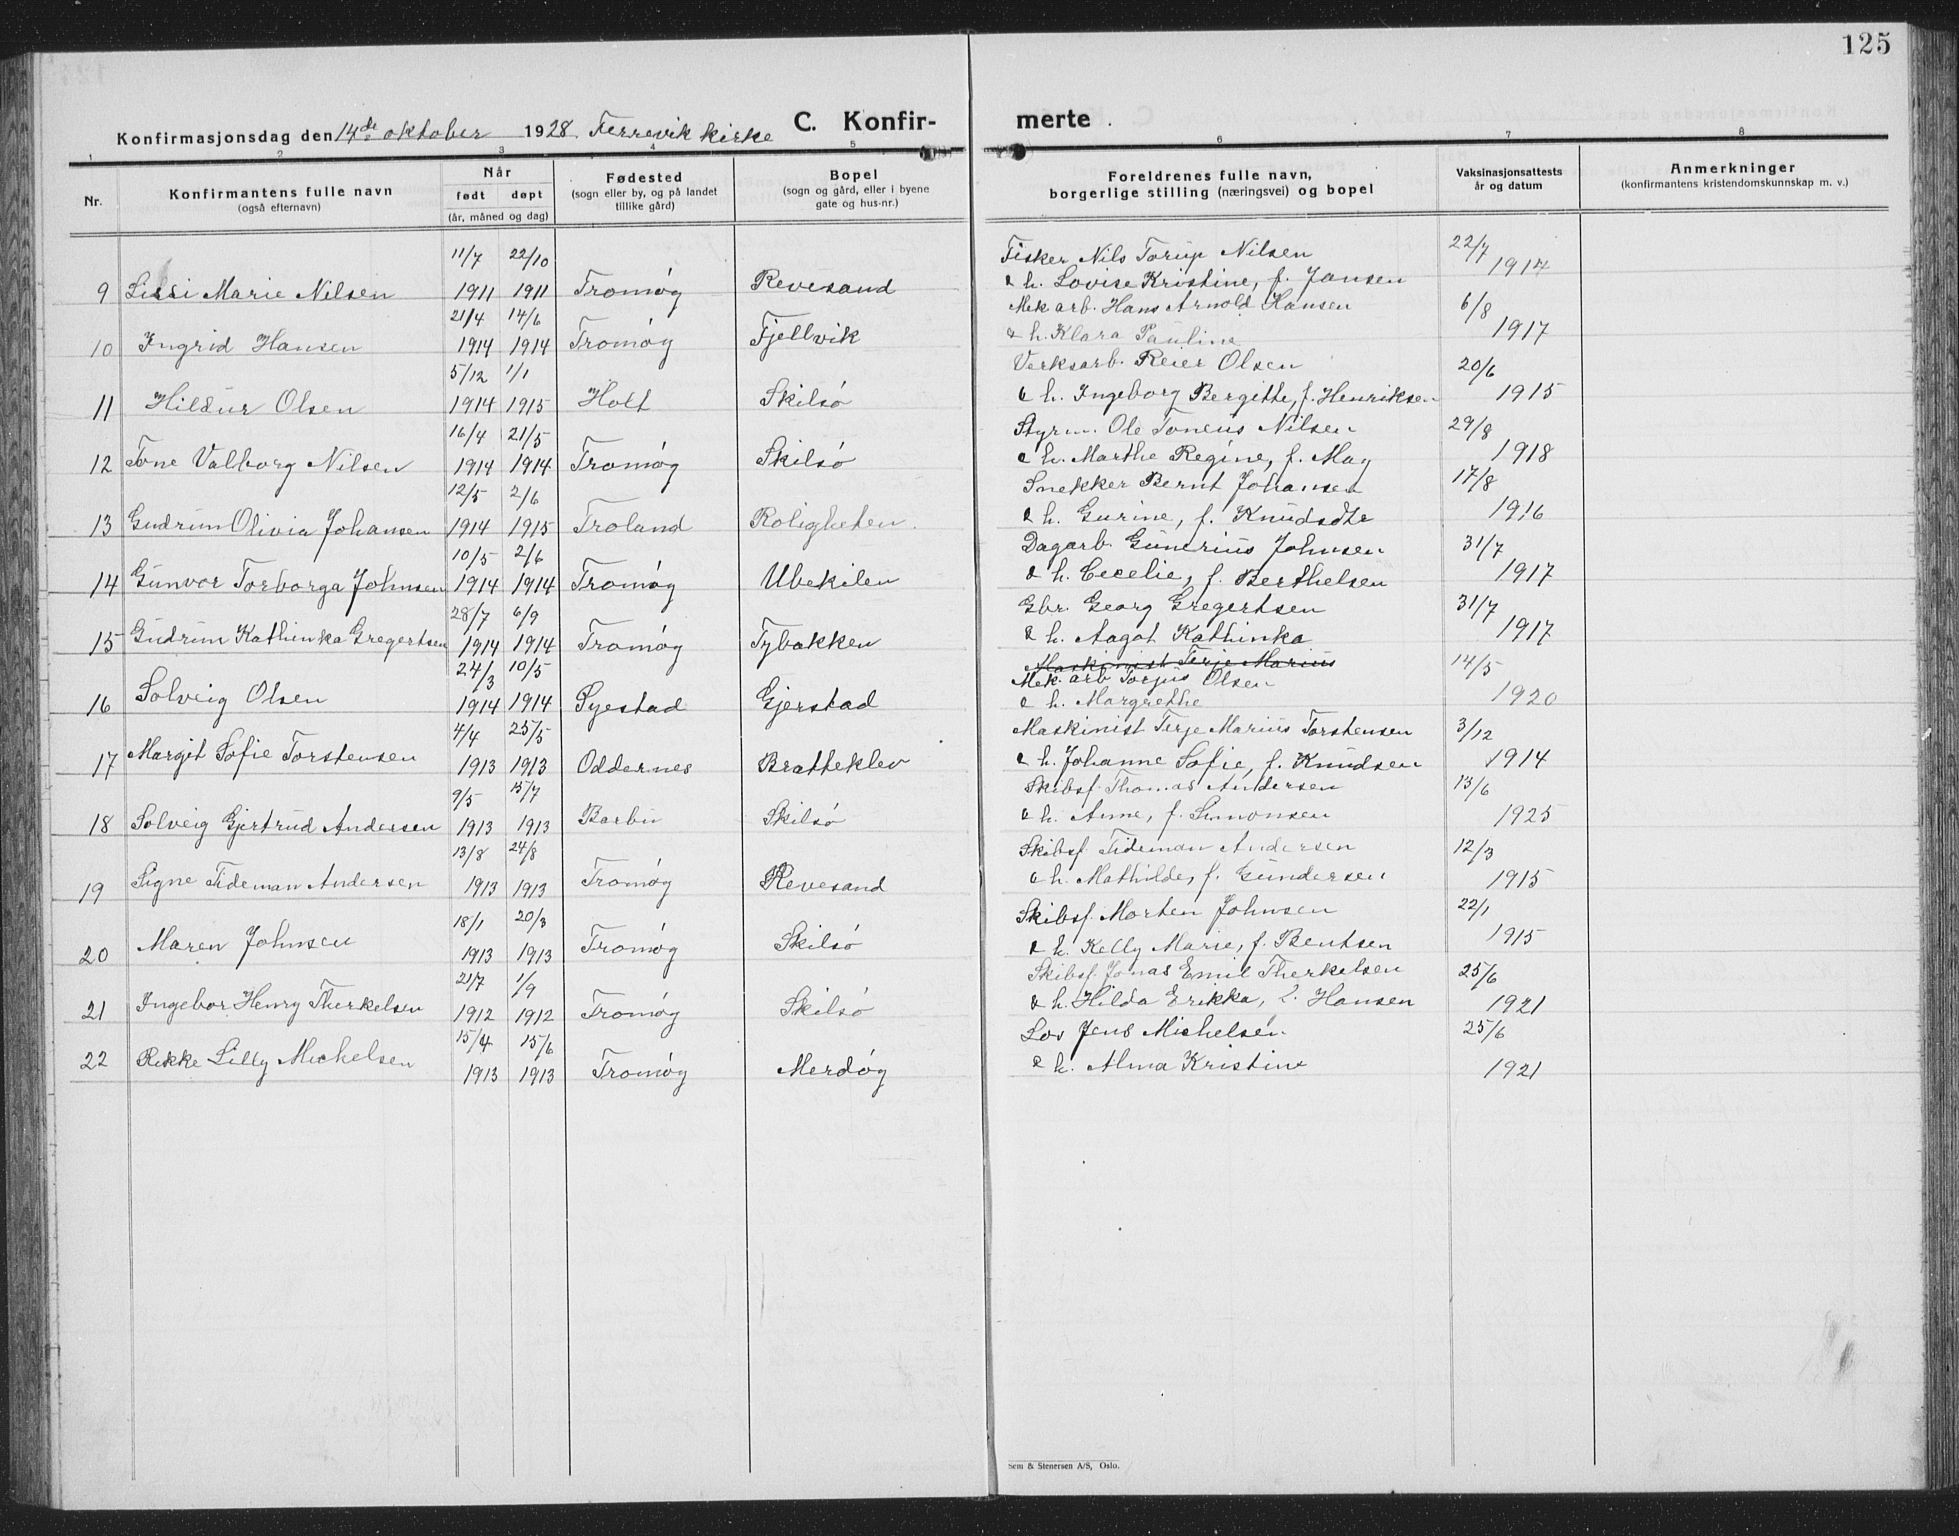 125
Konfirmasjonsdag den 14de oktober 1928 Færevik kirke C. Konfir- merte.
1 2 3 4 5 6 7 8
Nr. Konfirmantens fulle navn (også efternavn) Når født døpt (år, måned og dag) Fødested (sogn eller by, og på landet tillike gård) Bopel (sogn og gård, eller i byene gate og hus-nr.) Foreldrenes fulle navn, borgerlige stilling (næringsvei) og bopel Vaksinasjonsattests år og datum Anmerkninger (konfirmantens kristendomskunnskap m. v.)
11/7 22/10 Fisker Nils Torup Nilsen 22/7
9 Lissi Marie Nilsen 1911 1911 Tromøy Revesand & h. Lovise Kristine, f. Jansen 1914
21/4 14/6 Mek arb. Hans Arnold Hansen 6/8
10 Ingrid Hansen 1914 1914 Tromøy Fjellvik & h. Klara Pauline 1917
5/12 1/1 Verksarb. Reier Olsen 20/6
11 Hildur Olsen 1914 1915 Holt Skilsø & h. Ingeborg Bergitte, f. Henriksen 1915
16/4 21/5 Styrm. Ole Toneus Nilsen 29/8
12 Tone Valborg Nilsen 1914 1914 Tromøy Skilsø & h. Marthe Regine, f. May 1918
12/5 2/6 Snekker Bernt Johansen 17/8
13 Gudrun Olivia Johansen 1914 1915 Froland Roligheten. & h. Gurine, f. Knudsdtr 1916
10/5 2/6 Dagarb. Gunerius Johnsen 31/7
14 Gunvor Torborga Johnsen 1914 1914 Tromøy Ubekilen & h. Cecelie, f. Berthelsen 1917
28/7 6/9 Gbr. Georg Gregertsen 31/7
15 Gudrun Kathinka Gregertsen 1914 1914 Tromøy Tybakken & h. Aagot Kathinka 1917
24/3 10/5 Maskinist Terje Marius 14/5
Mek. arb Torjus Olsen
16 Solveig Olsen 1914 1914 Øyestad Gjerstad & h. Margrethe 1920
4/4 25/5 Maskinist Terje Marius Torstensen 3/12
17 Margit Sofie Torstensen 1913 1913 Oddernes Bratteklev & h. Johanne Sofie, f. Knudsen 1914
9/5 15/7 Skibsf. Thomas Andersen 13/6
18 Solveig Gjertrud Andersen 1913 1913 Barbu Skilsø & h. Anne, f. Simonsen 1925
13/8 24/8 Skibsf. Tideman Andersen 12/3
19 Signe Tideman Andersen 1913 1913 Tromøy Revesand & h. Mathilde, f. Gundersen 1915
18/1 20/3 Skibsf. Morten Johnsen 22/1
20 Maren Johnsen 1913 1913 Tromøy Skilsø & h. Kelly Marie, f. Bentsen 1915
21/7 1/9 Skibsf. Jonas Emil Therkelsen 25/6
21 Ingebor Henry Therkelsen 1912 1912 Tromøy Skilsø & h. Hilda Erikka, f. Hansen 1921
15/4 15/6 Los Jens Michelsen 25/6
22 Rikke Lilly Michelsen 1913 1913 Tromøy Merdøy & h. Alma Kristine 1921
Sem & Stenersen A/S, Oslo.